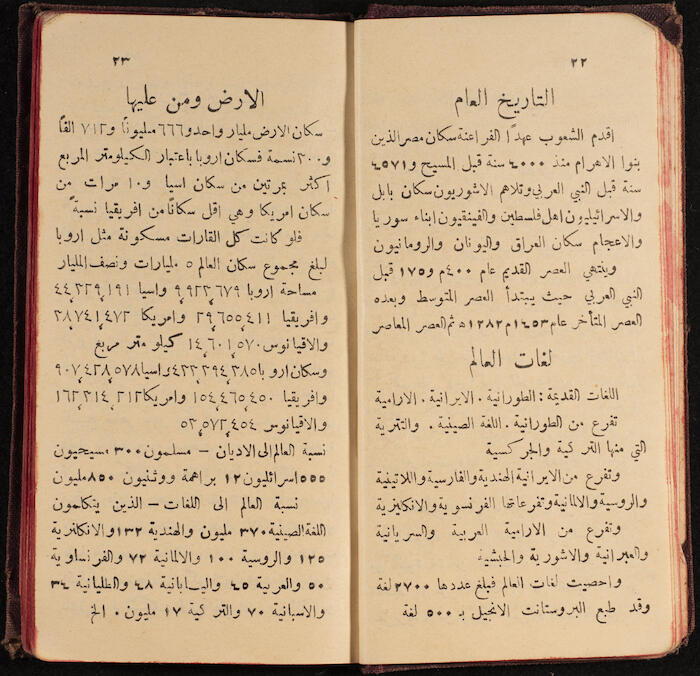 ٢٢
التاريخ العام
اقدم الشعوب عهدًا الفراعنة سكان مصر الذين
بنوا الاهرام منذ ٤٠٠٠ سنة قبل المسيح و٤٥٧١
سنة قبل النبي العربي وتلاهم الاشوريون سكان بابل
والاسرائيليون اهل فلسطين والفينقيون ابناء سوريا
والاعجام سكان العراق واليونان والرومانيون
وينتهي العصر القديم عام ٤٠٠م و١٧٥ قبل
النبي العربي حيث يبتدأ العصر المتوسط وبعده
العصر المتأخر عام ١٤٥٣م ١٢٨٢ﻫ ثم العصر المعاصر
لغات العالم
اللغات القديمة : الطورانية . الايرانية . الارامية
تفرع من الطورانية . اللغة الصينية . والتترية
التي منها التركية والجركسية
وتفرع من الايرانية الهندية والفارسية واللاتينية
والروسية والالمانية وتفرعاتها الفرنسوية والانكليزية
وتفرع من الارامية العربية والسريانية
والعبرانية والاشورية والحبشية
واحصيت لغات العالم فبلغ عددها ٢٧٠٠ لغة
وقد طبع البروستانت الانجيل بـ ٥٠٠ لغة
٢٣
الارض ومن عليها
سكان الارض مليار واحد و٦٦٦ مليونًا و٧١٢ الفًا
و٢٠٠ نسمة فسكان اروبا باعتبار الكيلومتر المربع
اكثر بمرتين من سكان اسيا و١٠ مرات من
سكان امريكا وهي اقل سكانًا من افريقيا نسبةً
فلو كانت كل القارات مسكونة مثل اروبا
لبلغ مجموع سكان العالم ٥ مليارات ونصف المليار
مساحة اروبا ٩,٩٢٢,٦٧٩ واسيا ٤٤,٢٢٩,١٩١
وافريقيا ٢٩,٦٥٥,٤١١ وامريكا ٢٨,٧٤١,٤٧٢
والاقيانوس ١٤,٦٠١,٥٧٠ كيلو متر مربع
وسكان اروبا ٤٢٢,٢٩٤,٢٨٥ واسيا ٩٠٧,٤٢٨,٥٧٨
وافريقيا ١٥٤,٤٦٥,٤٥٠ وامريكا ١٦٢,٢١٤,٢١٢
والاقيانوس ٥٢,٥٧٢,٤٥٤
نسبة العالم الى الاديان – مسلمون ٣٠٠ مسيحيون
٥٥٥ اسرائليون ١٢ براهمة ووثنيون ٨٥٠ مليون
نسبة العالم الى اللغات – الذين يتكلمون
اللغة الصينية ٣٧٠ مليون والهندية ١٣٢ والانكلترية
١٢٥ والروسية ١٠٠ والالمانية ٧٢ والفرنساوية
٥٠ والعربية ٤٥ واليابانية ٤٨ والطليانية ٣٤
والاسبانية ٧٠ والتركية ١٧ مليون . الخ